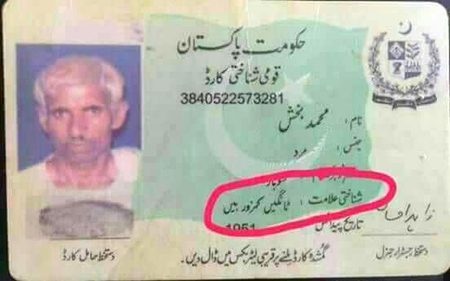 حکومت پاکستان
قومی شناختی کارڈ
3840522573281
نام: محمد بخش
جنس: مرد
شناختی علامت: ٹانگیں کمزور ہیں
تاریخ پیدائش 1951
دستخط حامل کارڈ
دستخط رجسٹرار جنرل
گمشدہ کارڈ ملنے پر قریبی لیٹر بکس میں ڈال دیں۔